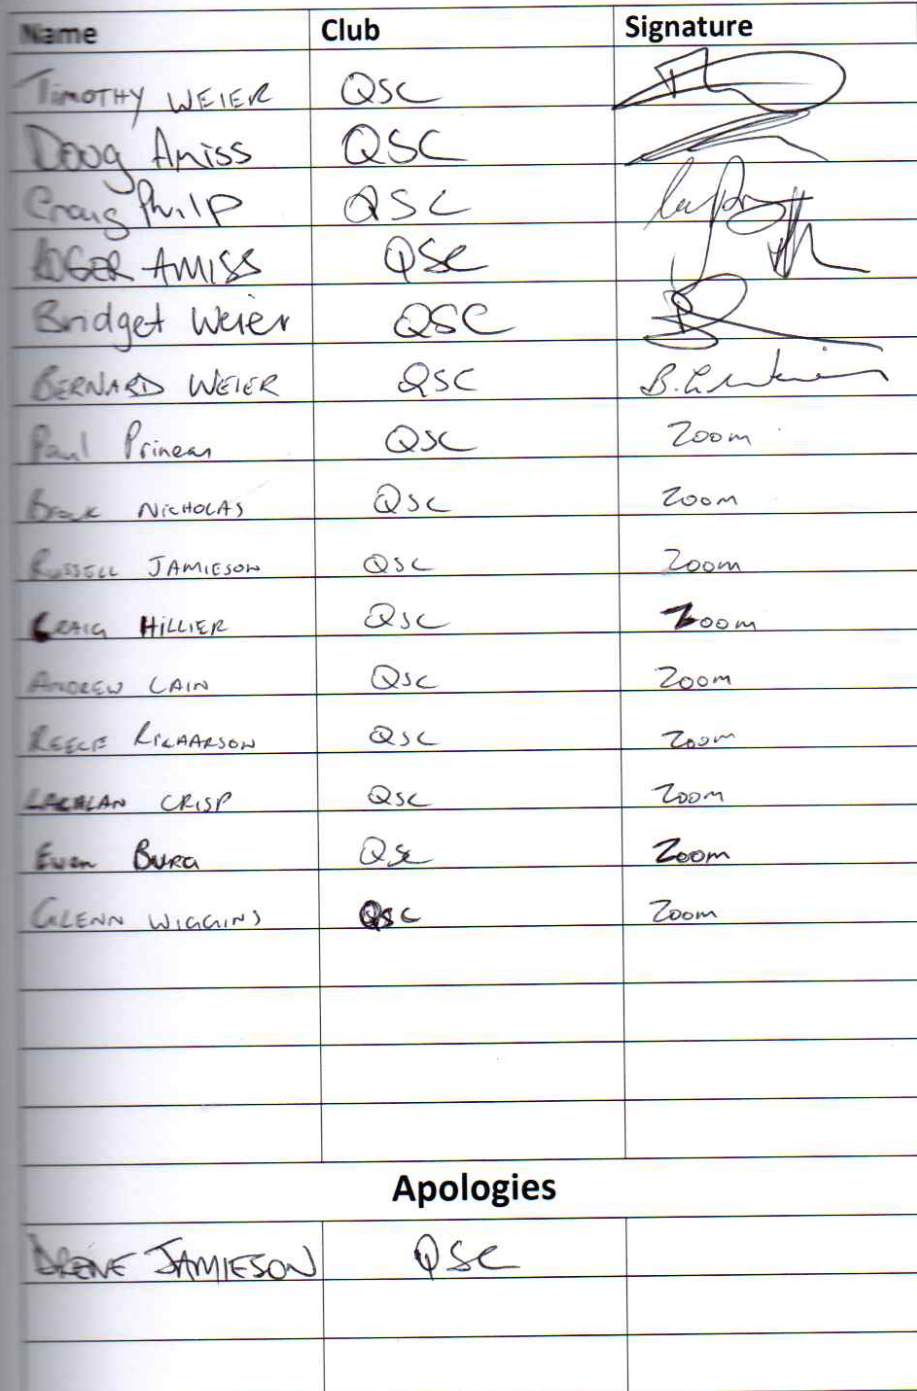 Name Club Signature
TIMOTHY WEIER QSC
Doug Amiss QSC
Craig Philp QSC
ROGER AMISS QSC
Bridget Weier QSC
BERNARD WEIER QSC
Paul Prineas QSC Zoom
Brock NICHOLAS QSC Zoom
RUSSELL JAMIESON QSC Zoom
CRAIG HILLIER QSC Zoom
ANDREW CAIN QSC Zoom
REECE RICHAARSON QSC Zoom
LACHLAN CRISP QSC Zoom
Ewen BURG QSC Zoom
GLENN WIGGINS QSC Zoom
Apologies
JAMIESON QSC